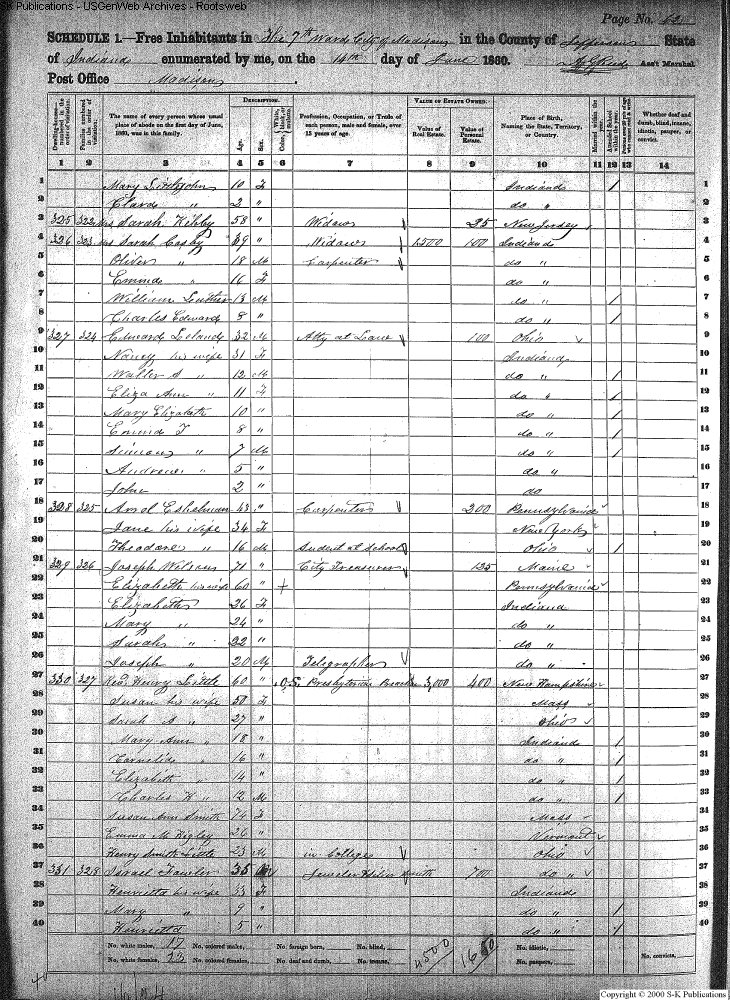 S-K Publications - USGenWeb Archives - Rootsweb
Page No. 62
SCHEDULE 1.—Free Inhabitants in The 7th Ward City of Madison in the County of Jefferson State
of Indiana enumerated by me, on the 14th day of June 1860. Ass't Marshal
Post Office Madison
DESCRIPTION. VALUE OF ESTATE OWNED.
The name of every person whose usual place of abode on the first day of June, 1860, was in this family.
Age. Sex. Color, White, black, or mulatto.
Profession, Occupation, or Trade of each person, male and female, over 15 years of age.
Value of Real Estate. Value of Personal Estate.
Place of Birth, Naming the State, Territory, or Country.
Married within the year. Attended School within the year.
Whether deaf and dumb, blind, insane, idiotic, pauper, or convict.
1 2 3 4 5 6 7 8 9 10 11 12 13 14
1 Mary 10 F Indiana / 1
2 Clara " 2 " do " 2
3 325 322 Mrs Sarah 58 " Widow 25 New Jersey 3
4 326 323 Mrs Sarah Cosby 39 " Widow 1500 100 Indiana 4
5 Oliver " 18 M Carpenter do " 5
6 Emma " 16 F do " 6
7 William Luther 13 M do " / 7
8 Charles Edward 8 " do " / 8
9 327 324 Edward Leland 32 M Atty at Law 100 Ohio 9
10 Nancy his wife 31 F Indiana 10
11 Walter S " 12 M do " / 11
12 Eliza Ann " 11 F do " / 12
13 Mary Elizabeth 10 " do " / 13
14 Emma F 8 " do " / 14
15 Simeon " 7 M do " / 15
16 Andrew " 5 " do " 16
17 John 2 " do 17
18 328 325 Eshelman 43 " Carpenter 200 Pennsylvania 18
19 Jane his wife 34 F New York 19
20 Theodore " 16 M Student at School Ohio / 20
21 329 326 Joseph Wilson 71 " City Treasurer 125 Maine 21
22 Elizabeth his wife 60 " Pennsylvania 22
23 Elizabeth 26 F Indiana 23
24 Mary " 24 " do " 24
25 Sarah " 22 " do " 25
26 Joseph " 20 M Telegrapher do " 26
27 330 327 Rev. Henry Little 60 " O.S. Presbyterian 3,000 400 New Hampshire 27
28 Susan his wife 50 F Mass 28
29 Sarah A " 27 " Ohio 29
30 Mary Ann " 18 " Indiana / 30
31 Cornelia " 16 " do " / 31
32 Elizabeth " 14 " do " / 32
33 Charles H " 12 M do " / 33
34 Susan Ann Smith 74 F Mass 34
35 Emma M. 26 " Vermont 35
36 Henry Smith Little 23 M in College Ohio 36
37 331 328 Israel Fowler 35 M Jeweler Silver Smith 700 do " 37
38 Henrietta his wife 33 F Indiana 38
39 Mary " 9 " do " / 39
40 Henrietta 5 " do " / 40
No. white males, 17 No. colored males, No. foreign born, No. blind, 4500 1650 No. idiotic,
No. white females, 23 No. colored females, No. deaf and dumb, No. insane, No. paupers, No. convicts,
Copyright © 2000 S-K Publications